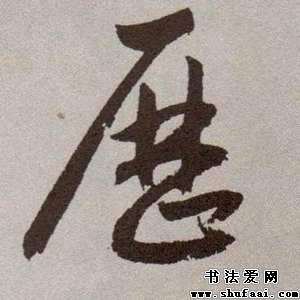 歷
书法爱网
www.shufaai.com